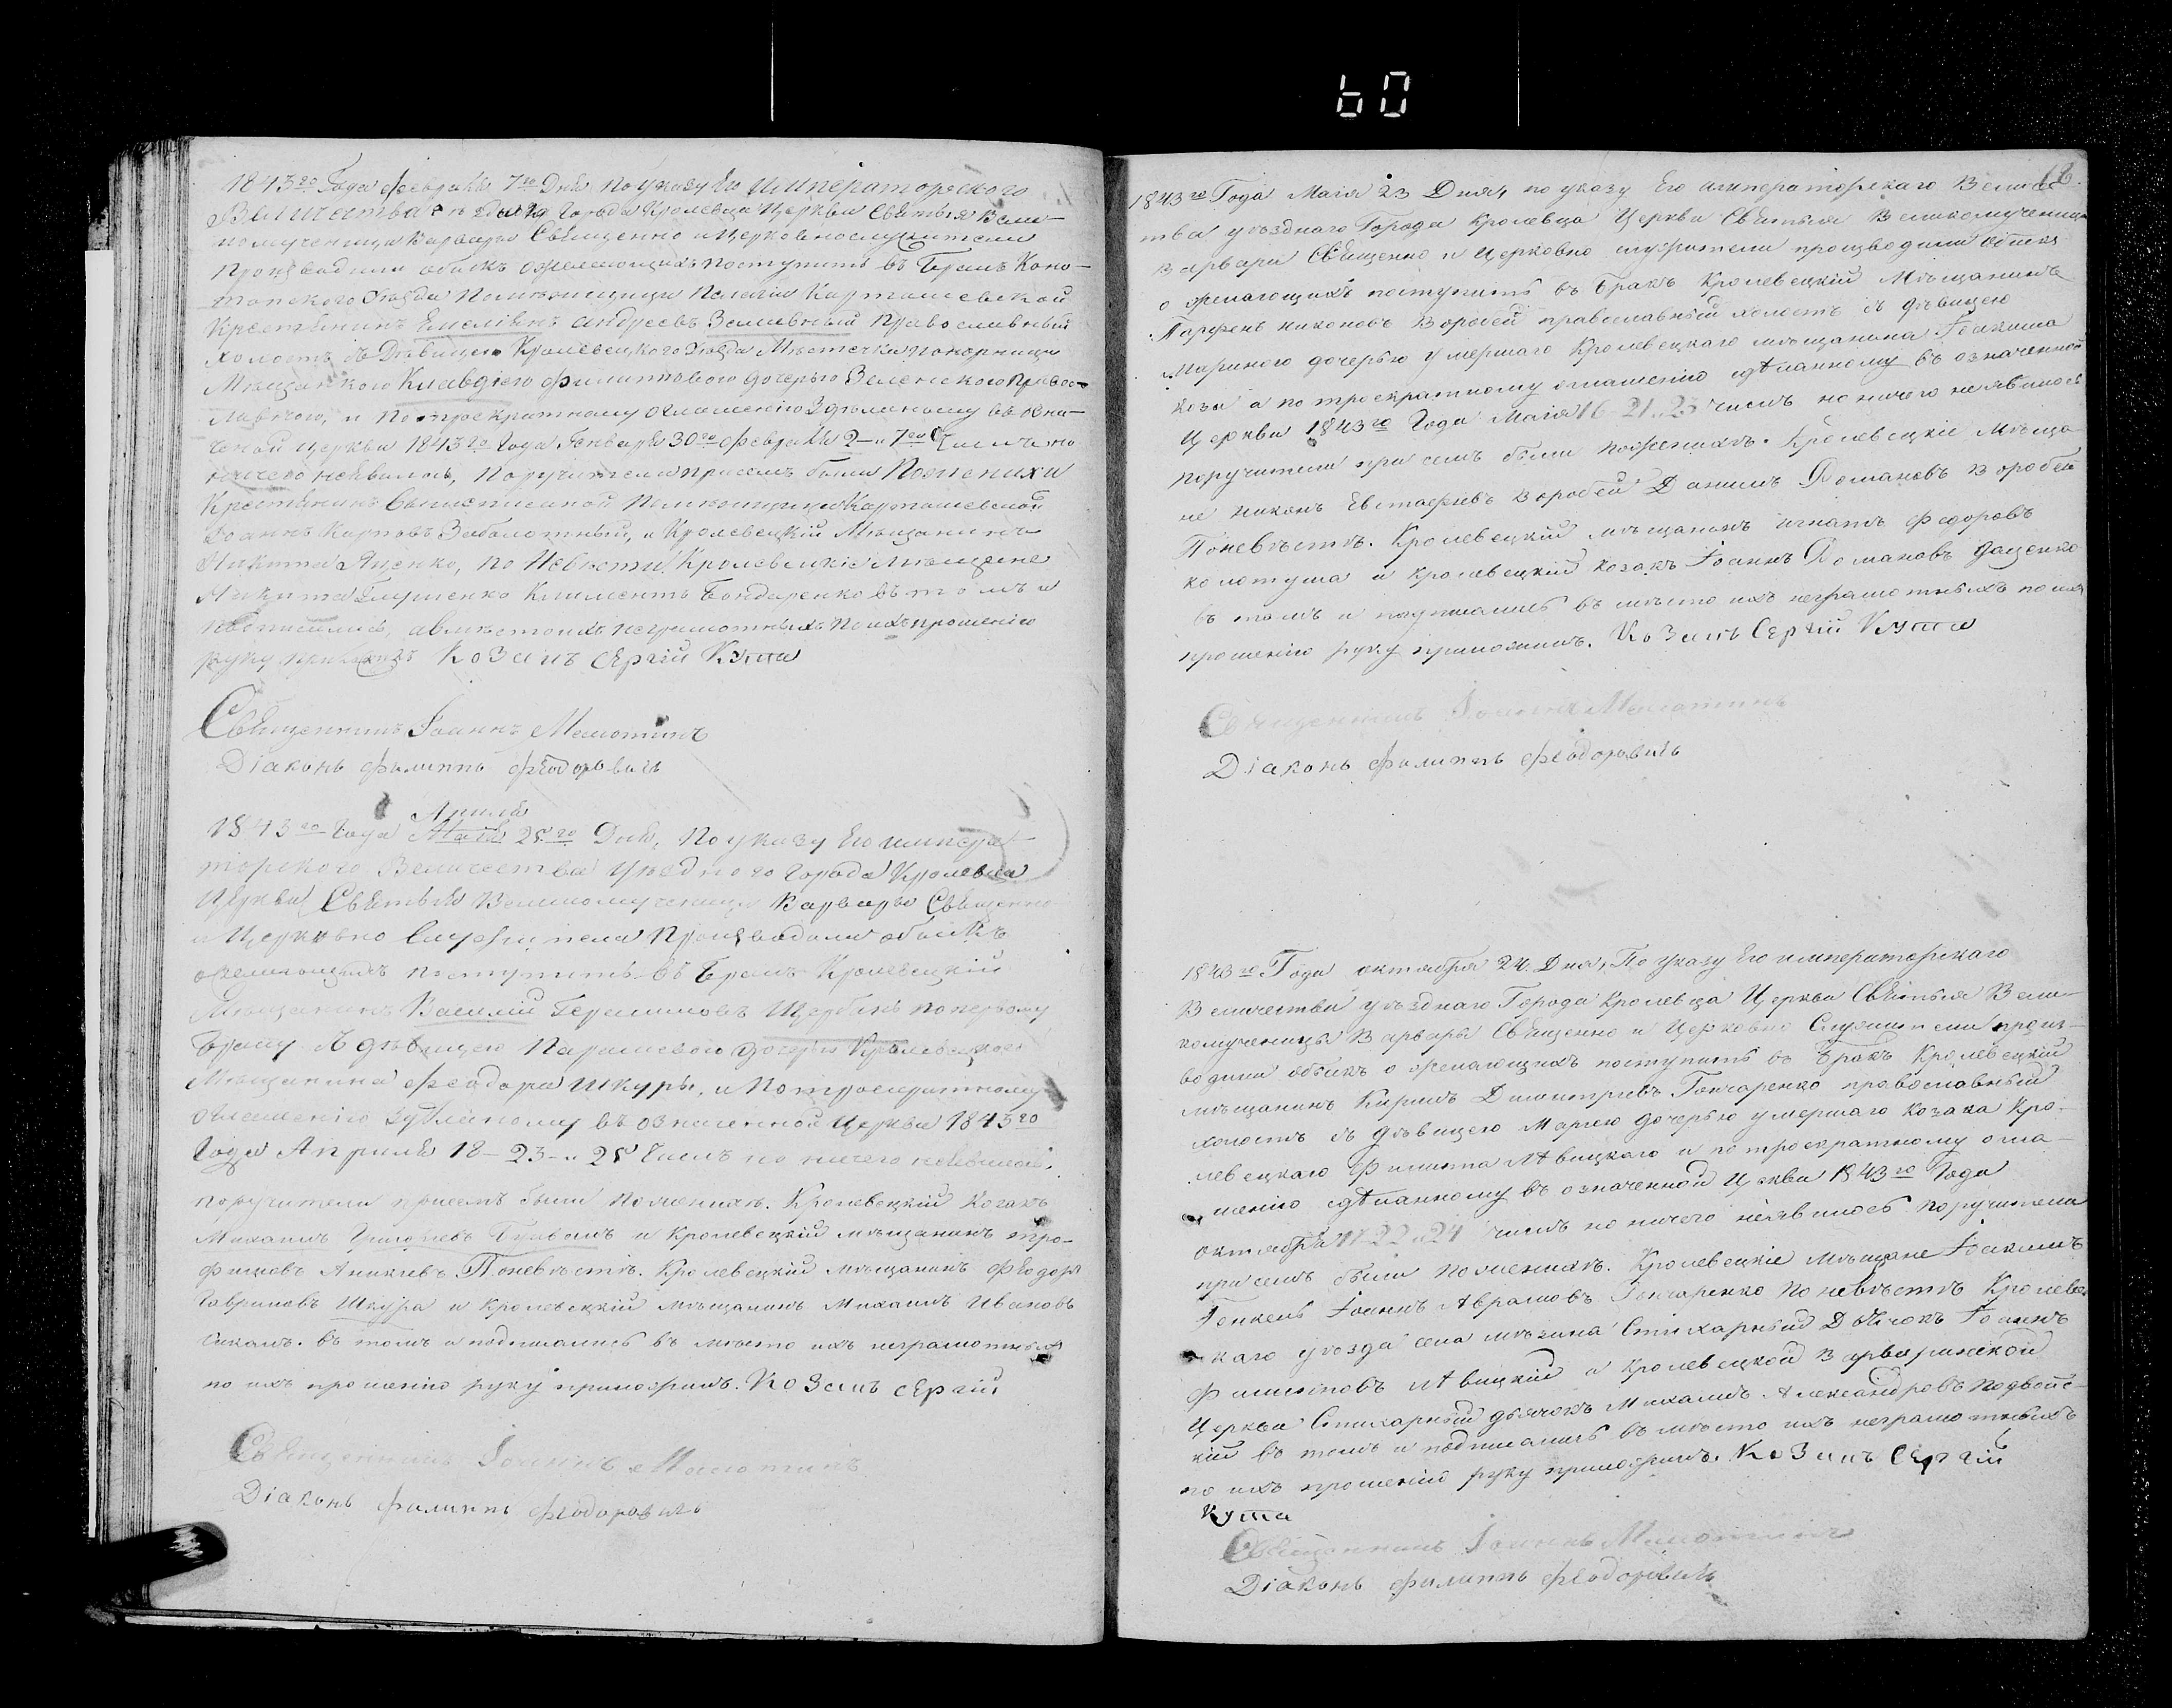 60
1843го Года февраля 7го Дня по указу Его Императорского
Величества Города Кролевца Церкви Святыя Вели-
комученицы Варвары Священно и Церковнослужители
производили обыскъ ожелающихъ поступить въ Бракъ Коно-
топского уѣзда помѣщицы Карташевской
Крестьянинъ Емелiянъ андреевъ православный
холостъ съ Дѣвицею Кролевецкого уѣзда Мѣстечка понорницы
Мѣщанкою Клавдiею филипповою дочерью Зеленского Правос-
лавною, и по троекратному оглашенiю здѣланому въ озна-
ченой церкви 1843го Года Генваря 30го февраля 2 и 7го Числъ но
ничего неявилось, Поручители присемъ были Поженихи
Крестьянинъ помѣщицы Карташевской
Iоаннъ Карповъ Заболотный, и Кролевецкiй Мѣщанинъ
Никита Яценко, по Невести Кролевецкiе Мѣщане
Никита Климентъ Бондаренко въ томъ и
подписались, авмѣстоихъ неграмотныхъ поихъ прошенiю
руку Козакъ Сергiй Кушта
Священникъ Iоаннъ Малютинъ
Дiаконъ филиппъ феодоровичъ
Апрѣля
1843го Года Маiя 25го Дня, по указу Его императ-
торского Величества уѣздного Города Кролевца
Церкви Святыя Великомученицы Варвары Священно
и Церковно Служители производили обыскъ
ожелающихъ поступить въ Бракъ Кролевецкiй
Мѣщанинъ Василiй Герасимовъ Щербакъ по первому
браку съ дѣвицею Параскевою дочерью Кролевецкого
Мѣщанина Феодора Шкуры, и По троекратному
оглашенiю здѣланому въ означенной Церкви 1843го
Года Апрѣля 18-23-и 25 Числъ но ничего неявилось,
поручители присемъ были поженихѣ. Кролевецкiй Козакъ
Михаилъ Григорьевъ и Кролевецкiй мѣщанинъ Тро-
фимовъ Поневѣстѣ. Кролевецкiй мѣщанинъ Феодоръ
Гавриловъ Шкура и Кролевецкiй мѣщанинъ Михаилъ Ивановъ
въ томъ и подписались въ мѣсто ихъ неграмотныхъ
по ихъ прошенiю руку приложилъ. Козакъ Сергiй
Священникъ Iоаннъ Малютинъ
Дiаконъ филиппъ феодоровичъ
1843го Года Маiя 23 Дня, по указу Его императорскаго Величес-
тва уѣзднаго Города Кролевца Церкви Святыя Великомученицы
Варвары Священно и Церковно служители производили обыскъ
о желающихъ поступить въ Бракъ Кролевецкiй Мѣщанинъ
Парфенъ никоновъ Воробей православный холостъ съ дѣвицею
Мариною дочерью умершаго Кролевецкаго мѣщанина Iоакима
Козы а по троекратному оглашенiю сдѣланному въ означенной
Церкви 1843го Года Маiя 16-21 и 23 числъ но ничего неявилось
поручители при семъ были поженихѣ. Кролевецкiе Мѣща-
не никонъ Евстафiевъ Воробей Данiилъ Романовъ Воробей
Поневѣстѣ. Кролевецкiй мѣщанинъ игнатъ федоровъ
колотуша и кролевецкiй козакъ Iоаннъ Романовъ даценко
въ томъ и подписались въ мѣсто ихъ неграмотныхъ по ихъ
прошенiю руку приложилъ. Козакъ Сергiй Кушта
Священникъ Iоаннъ Малютинъ
Дiаконъ филиппъ феодоровичъ
1843го Года октября 24 Дня, По указу Его императорскаго
Величества уѣзднаго Города Кролевца Церкви Святыя Вели-
комученицы Варвары Священно и Церковно Служители произ-
водили обыскъ о желающихъ поступить въ Бракъ Кролевецкiй
мѣщанинъ Кирилъ Димитрiевъ Гончаренко православный
холостъ съ дѣвицею Марiею дочерью умершаго Козака Кро-
левецкаго Филиппа и по троекратному огла-
шенiю сдѣланному въ означенной Церкви 1843го Года
октября 17 22 и 24 числъ но ничего неявилось поручители
присемъ были поженихѣ. Кролевецкiе мѣщане Iоакимъ
Iоаннъ Аврамовъ Гончаренко поневѣстѣ Кролевец-
каго уѣзда села мѣзина Стихарный Дьячокъ Iоаннъ
Филиповъ и Кролевецкой Варваринской
Церкви Стихарный дьячокъ Михаилъ Александровъ подвойс-
кiй въ томъ и подписались въ мѣсто ихъ неграмотныхъ
по ихъ прошенiю руку приложилъ. Козакъ Сергiй
Кушта
Священникъ Iоаннъ Малютинъ
Дiаконъ филиппъ феодоровичъ